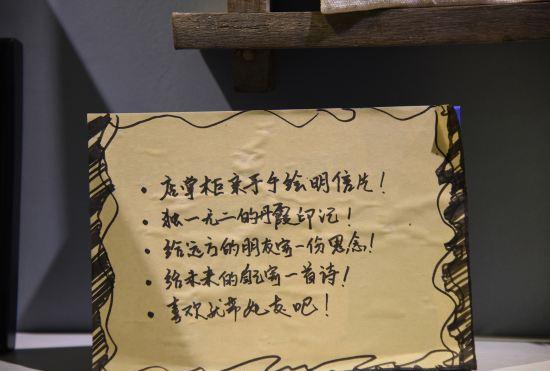 • 店掌柜亲手手绘明信片！
• 独一无二的丹霞印记！
• 给远方的朋友寄一份思念！
• 给未来的自己寄一首诗！
• 喜欢就带她走吧！